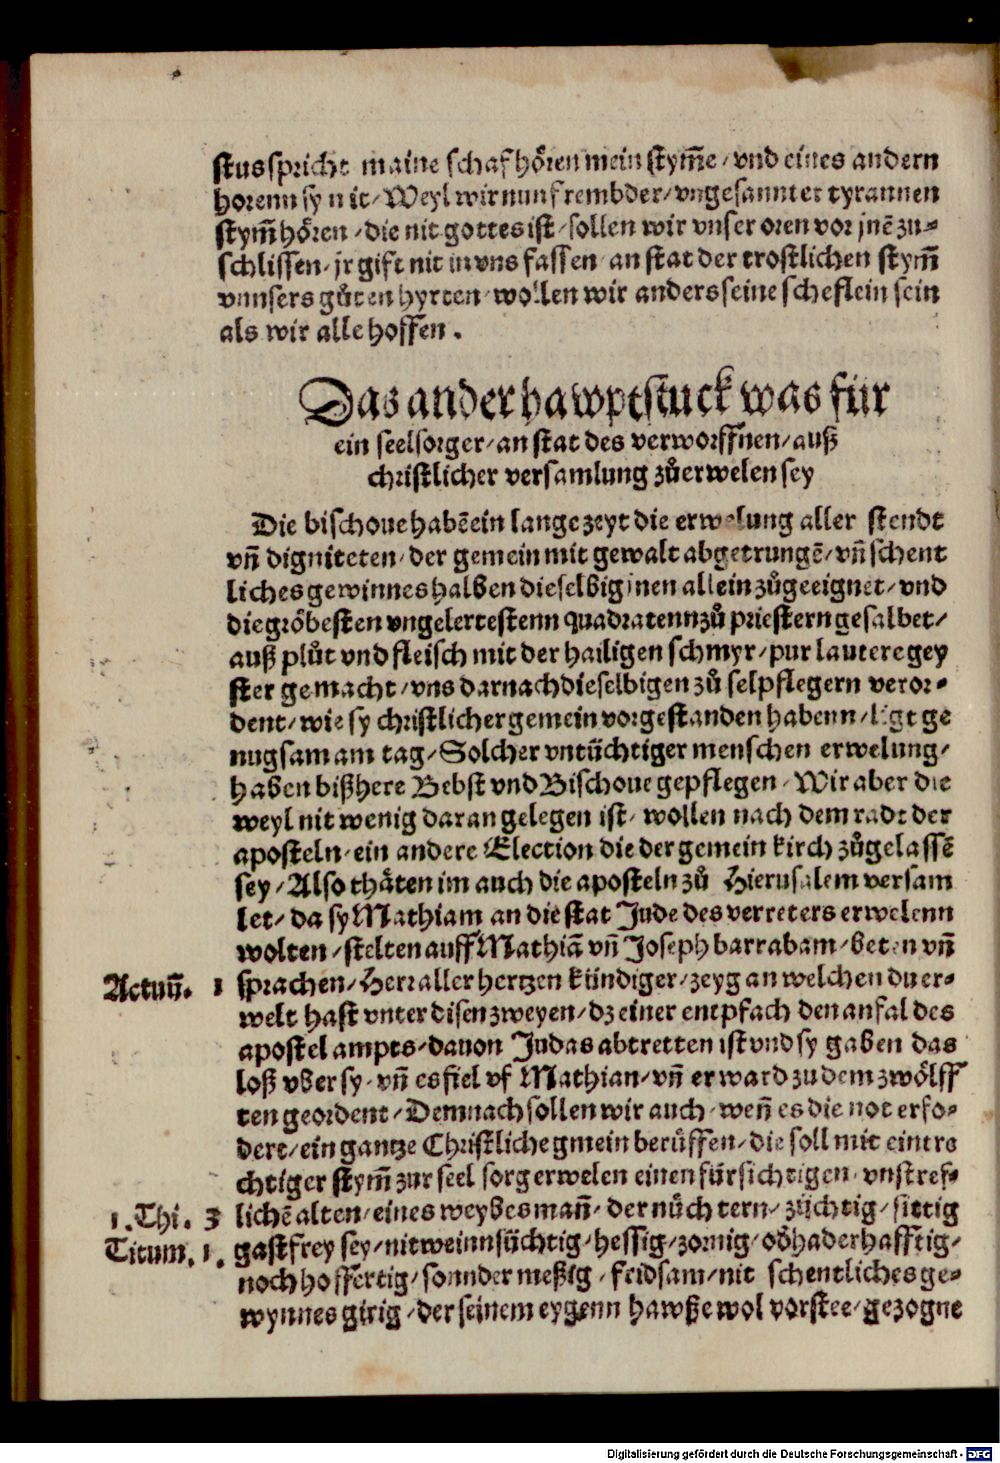 stus spricht maine schaf hören mein stym̃e / vnd eines andern
horenn sy nit / Weyl wir nun frembder / vngesannter tyrannen
stym̃ hören / die nit gottes ist / sollen wir vnser oren vor jnē zu-
schlissen / jr gift nit in vns fassen / an stat der trostlichen stym̃
vnnsers gůten hyrten / wollen wir anders seine scheflein sein
als wir alle hoffen .
Das ander hawptstuck was für
ein seelsorger / an stat des verworffnen / auß
christlicher versamlung zůerwelen sey
Die bischoue habē ein lange zeyt die erwelung aller stendt
vn̄ digniteten / der gemein mit gewalt abgetrungē / vn̄ schent
liches gewinnes halben dieselbig jnen allein zůgeeignet / vnd
die gröbesten vngelertestenn quadratenn zů priestern gesalbet /
auß plůt vnd fleisch mit der hailigen schmyr / pur lautere gey
ster gemacht / vns darnach dieselbigen zů selpflegern veror-
dent / wie sy christlicher gemein vorgestanden habenn / ligt ge
nugsam am tag / Solcher vntüchtiger menschen erwelung /
haben bißhere Bebst vnd Bischoue gepflegen / Wir aber die
weyl nit wenig daran gelegen ist / wollen nach dem radt der
aposteln / ein andere Election die der gemein kirch zůgelassē
sey / Also thäten im auch die aposteln zů Hierusalem versam
let / da sy Mathiam an die stat Jude des verreters erwelenn
wolten / stelten auff Mathiā vn̄ Joseph barrabam / beten vn̄
Actuū. 1 sprachen / Herr aller hertzen kündiger / zeyg an welchen du er-
welt hast vnter disen zweyen / dz einer entpfach den anfal des
apostel ampts / dauon Judas abtretten ist vnd sy gaben das
loß vber sy / vn̄ es fiel vf Mathian / vn̄ er ward zu dem zwölff
ten geordent / Demnach sollen wir auch / wen̄ es die not erfo-
dert / ein gantze Christliche gmein berüffen / die soll mit eintre
chtiger stym̃ zur seel sorg erwelen einen fürsichtigen / vnstref-
1. Thi. 3 lichē alten / eines weybes man̄ / der nüchtern / züchtig / sittig
Titum. 1. gastfrey sey / nit weinnsüchtig / hessig / zornig / oð haderhafftig /
noch hoffertig / sonnder meßig / fridsam / nit schentliches ge-
wynnes girig / der seinem eygenn hawße wol vorstee / gezogne
Digitalisierung gefördert durch die Deutsche Forschungsgemeinschaft - DFG